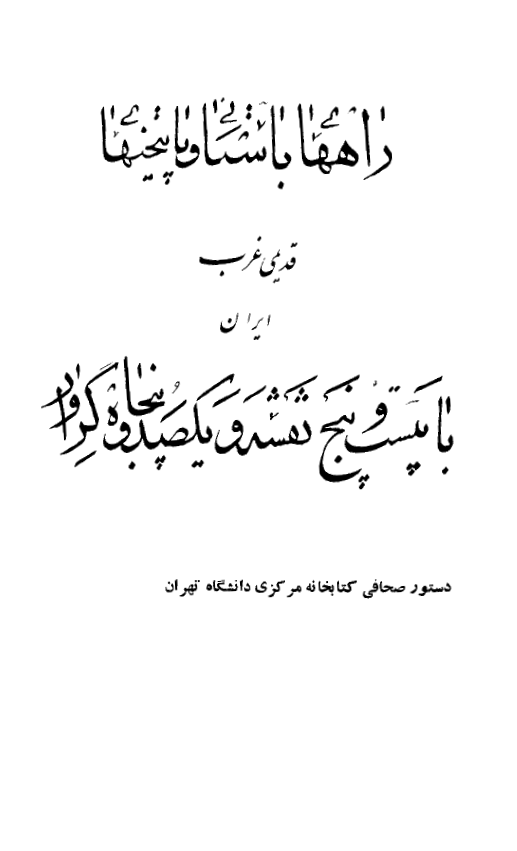 راههای باستانی و پایتختهای
قدیمی غرب
ایران
با بیست و پنج نقشه و یکصد و پنجاه گراور
دستور صحافی کتابخانه مرکزی دانشگاه تهران